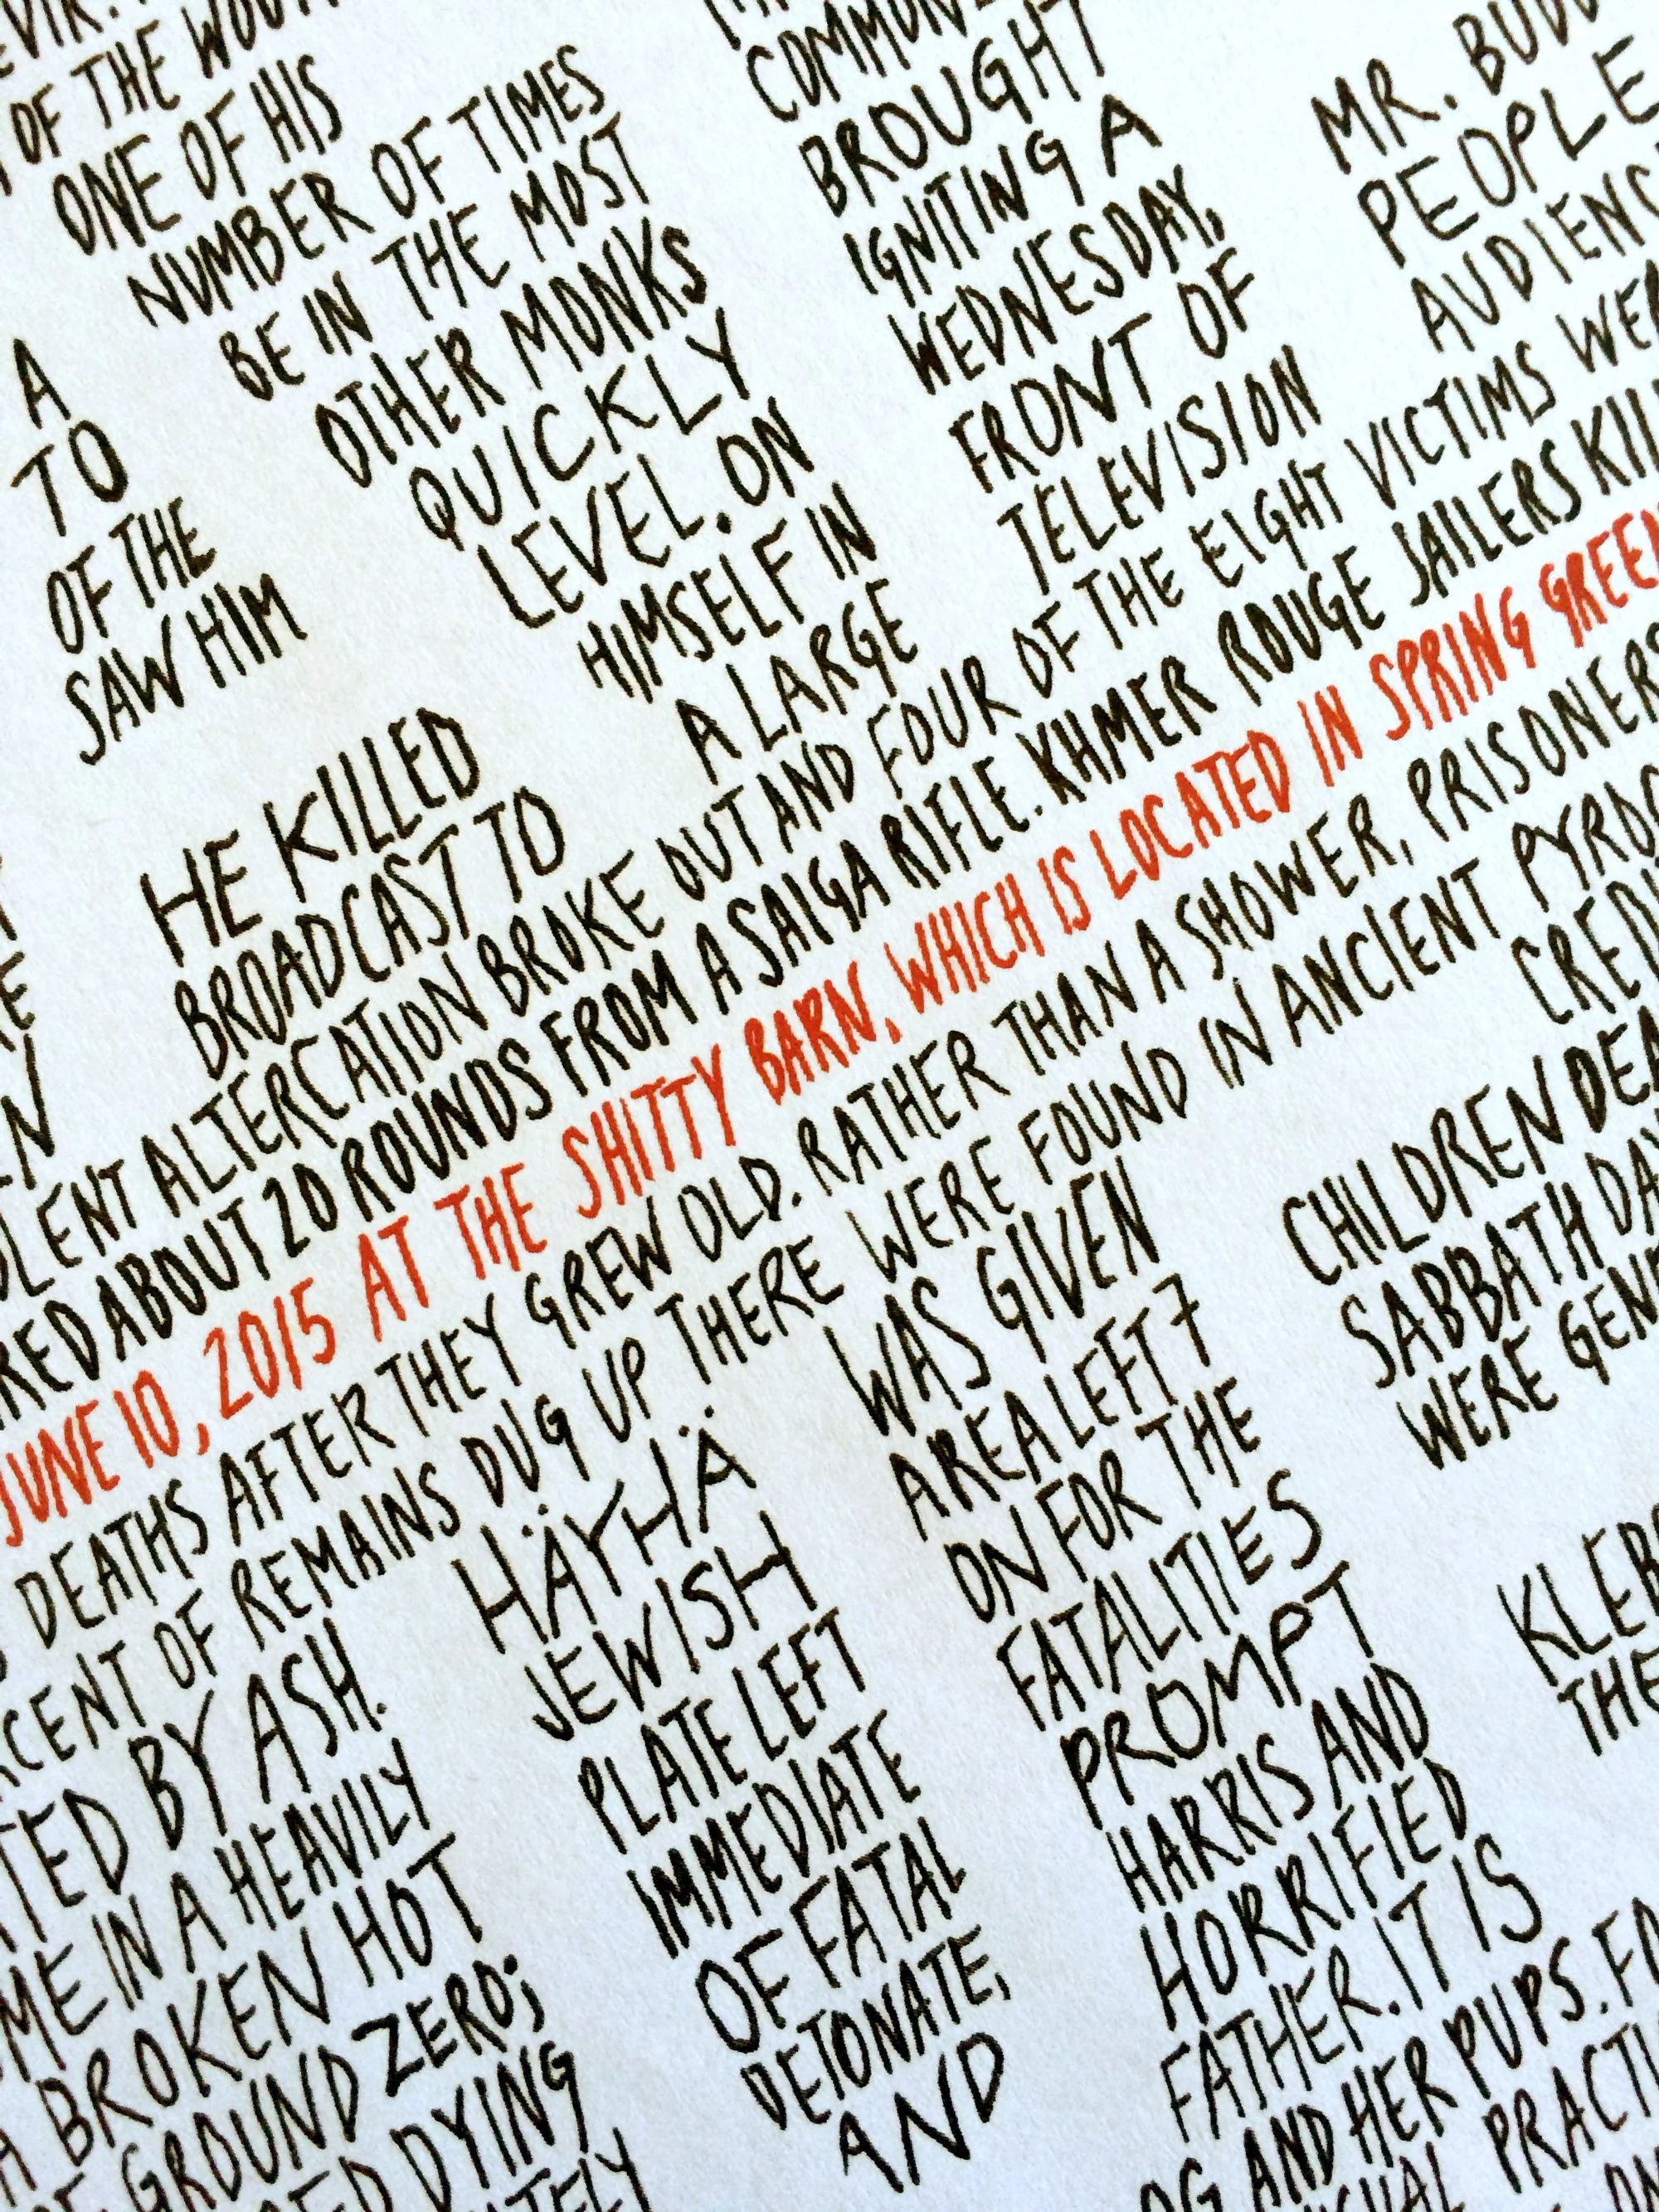 OF THE
ONE OF HIS
NUMBER OF TIMES
BE IN THE MOST
OTHER MONKS
QUICKLY
LEVEL. ON
HIMSELF IN
A LARGE
BROUGHT
IGNITING A
WEDNESDAY,
FRONT OF
TELEVISION
MR.
PEOPLE
A
TO
OF THE
SAW HIM
HE KILLED
BROADCAST TO
ALTERCATION BROKE OUT AND FOUR OF THE EIGHT VICTIMS
ABOUT 20 ROUNDS FROM A SAIGA RIFLE. KHMER ROUGE JAILERS
JUNE 10, 2015 AT THE SHITTY BARN, WHICH IS LOCATED IN SPRING GREEN
DEATHS AFTER THEY GREW OLD. RATHER THAN A SHOWER, PRISONERS
OF REMAINS DUG UP THERE WERE FOUND IN ANCIENT
BY ASH.
IN A HEAVILY
BROKEN HOT
GROUND ZERO;
DYING
HÄYHÄ
JEWISH
PLATE LEFT
IMMEDIATE
OF FATAL
DETONATE,
AND
WAS GIVEN
AREA LEFT 7
ON FOR THE
FATALITIES
PROMPT
HARRIS AND
HORRIFIED
FATHER. IT IS
AND HER PUPS.
CHILDREN
SABBATH
WERE